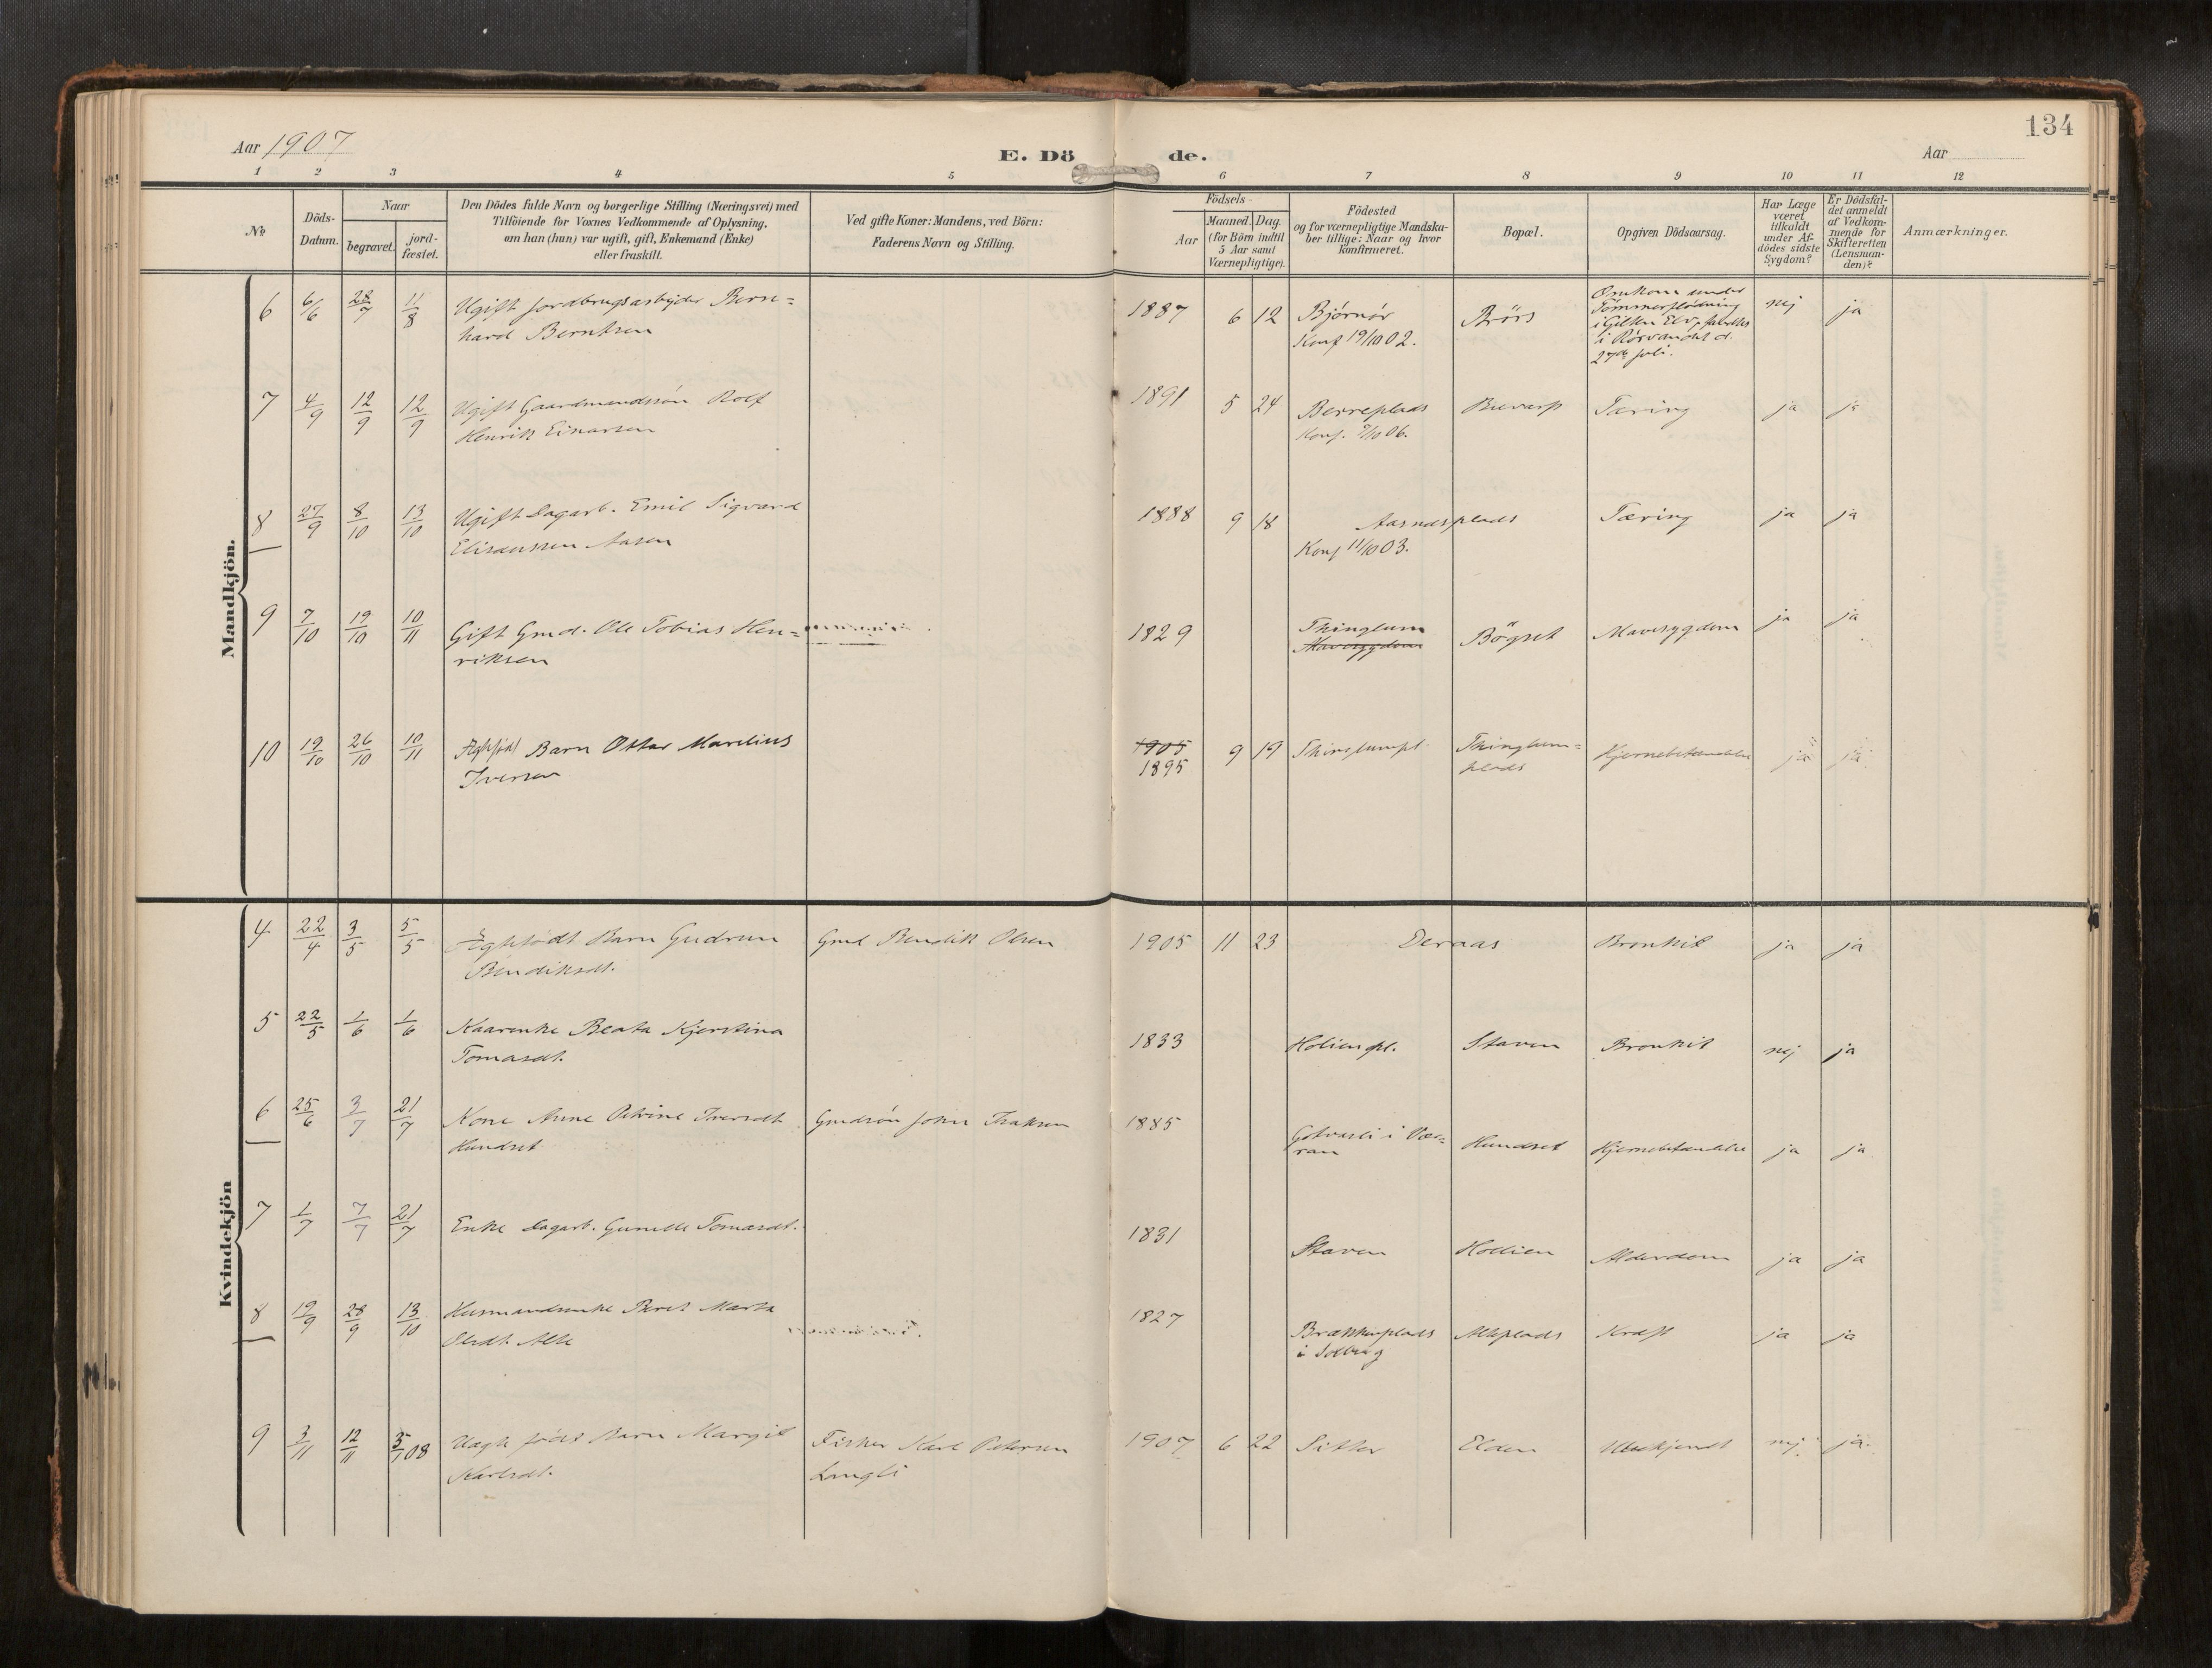 134
Aar 1907
E. Dö
de.
Aar
1 2 3 4 5 6 7 8 9 10 11 12
№
Döds-
Datum.
Naar
begravet.
jord-
fæstet.
Den Dödes fulde Navn og borgerlige Stilling (Næringsvei) med
Tilföiende for Voxnes Vedkommende af Oplysning,
om han (hun) var ugift, gift, Enkemand (Enke)
eller fraskilt.
Ved gifte Koner: Mandens, ved Börn:
Faderens Navn og Stilling.
Födsels-
Aar
Maaned. Dag.
(for Börn indtil
5 Aar samt
Værnepligtige).
Födested
og for værnepligtige Mandska-
ber tillige: Naar og hvor
konfirmeret.
Bopæl.
Opgiven Dödsaarsag.
Har Læge
været
tilkaldt
under Af-
dödes sidste
Sygdom?
Er Dödsfal-
det anmeldt
af Vedkom-
mende for
Skifteretten
(Lensman-
den)?
Anmærkninger.
Mandkjön.
6 6/6 28/7 11/8 Ugift Jordbrugsarbeider Bern= 1887 6 12 Bjørnør Brörs nej ja
hard Berntsen Konf 19/10 02.
Omkom under
Tømmerflödning
i Elv,
i d.
27de juli.
7 4/9 12/9 12/9 Ugift Gaardmandssön Rolf 1891 5 24 Berreplads Tæring ja ja
Henrik Einarsen Konf. 7/10 06.
8 27/9 8/10 13/10 Ugift Dagarb. Emil Sigvard 1888 9 18 Aasnesplads Tæring ja ja
Elisæussen Aasen Konf 11/10 03.
9 7/10 19/10 10/11 Gift Gmd. Ole Tobias Hen= 1829 Thinglum Bögset Mavesygdom ja ja
riksen Mavesygdom
10 19/10 26/10 10/11 Ægtefödt Barn Ottar Marelius 1905 9 19 Thinglumpl. Thinglum= Hjernebetændelse ja ja
Iversen 1895 plads
Kvindekjön
4 22/4 3/5 5/5 Ægtefödt Barn Gudrun Gmd Bendik Olsen 1905 11 23 Deraas Bronkit ja ja
Bendiksdt.
5 22/5 1/6 1/6 Kaarenke Beata Kjerstina 1833 Holienpl. Staven Bronkit nej ja
Tomasdt.
6 25/6 3/7 21/7 Kone Anne Petrine Iversdt Gmdsön John Isaksen 1885 i Vær= Hundset Hjernebetændelse ja ja
Hundset ran
7 1/7 7/7 21/7 Enke Dagarb. Gunelle Tomasdt. 1831 Staven Hollien Alderdom ja ja
8 19/9 28/9 13/10 Husmandsenke Beret Marta 1827 Brækkenplads Alteplads Kræft ja ja
Olsdt. Alte i Solberg
9 3/11 12/11 5/1 08 Uægte födt Barn Margit Fisker Karl Petersen 1907 6 22 Sitter Elden Ubekjendt nej ja.
Karlsdt. Langli